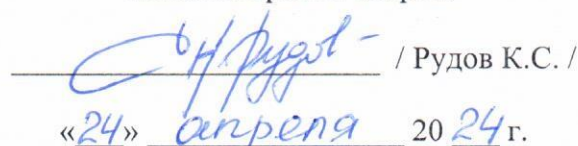 / Рудов К.С. /
«24» апреля 20 24 г.